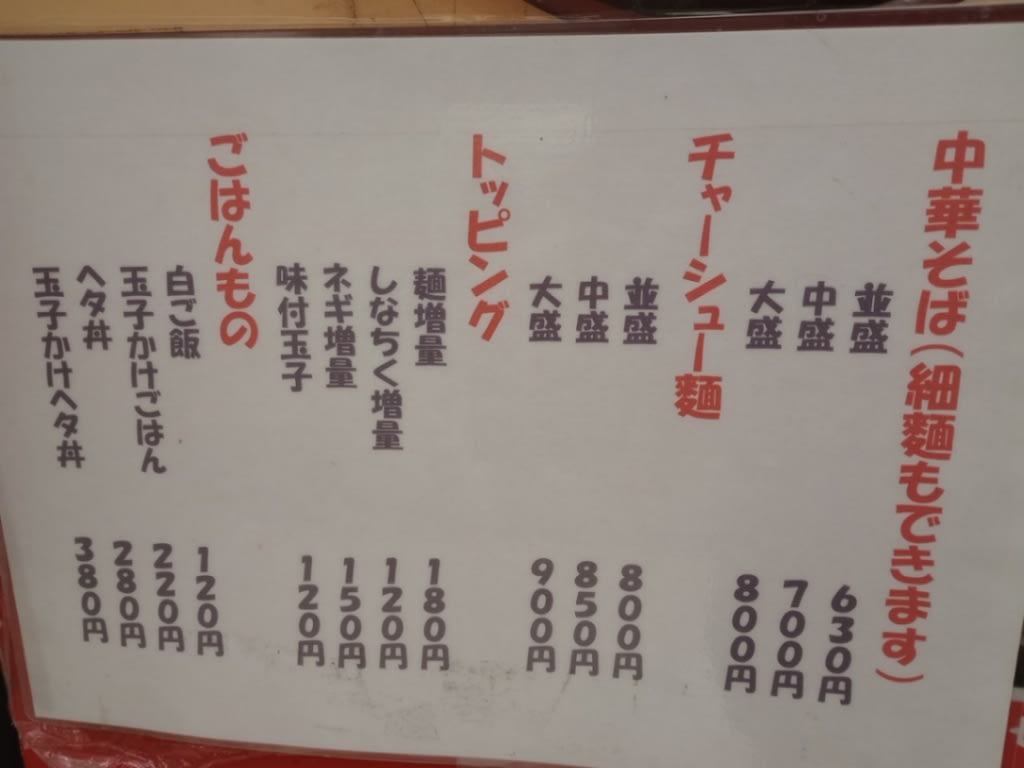 中華そば(細麺もできます)
並盛 630円
中盛 700円
大盛 800円
チャーシュー麺
並盛 800円
中盛 850円
大盛 900円
トッピング
麺増量 180円
しなちく増量 120円
ネギ増量 150円
味付玉子 120円
ごはんもの
白ご飯 120円
玉子かけごはん 220円
ヘタ丼 280円
玉子かけヘタ丼 380円